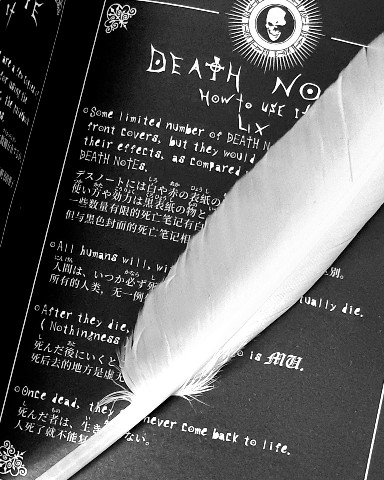 DEATH NO
How to use It
LIX
Some limited number of DEATH N
front covers, but they would
their effects, as compared
DEATH NOTEs.
デスノートには白や赤の表紙の
使い方や効力は黒表紙の物と
一些数量有限的死亡笔记有白
但与黑色封面的死亡笔记相 别。
All humans will, wi tually die.
人間は、いつか必ず死
所有的人类，无一例
After they die, is MU.
( Nothingness
死んだ後にいくと
死后去的地方是虚无
Once dead, they never come back to life.
死んだ者は、生き ない。
人死了就不能复